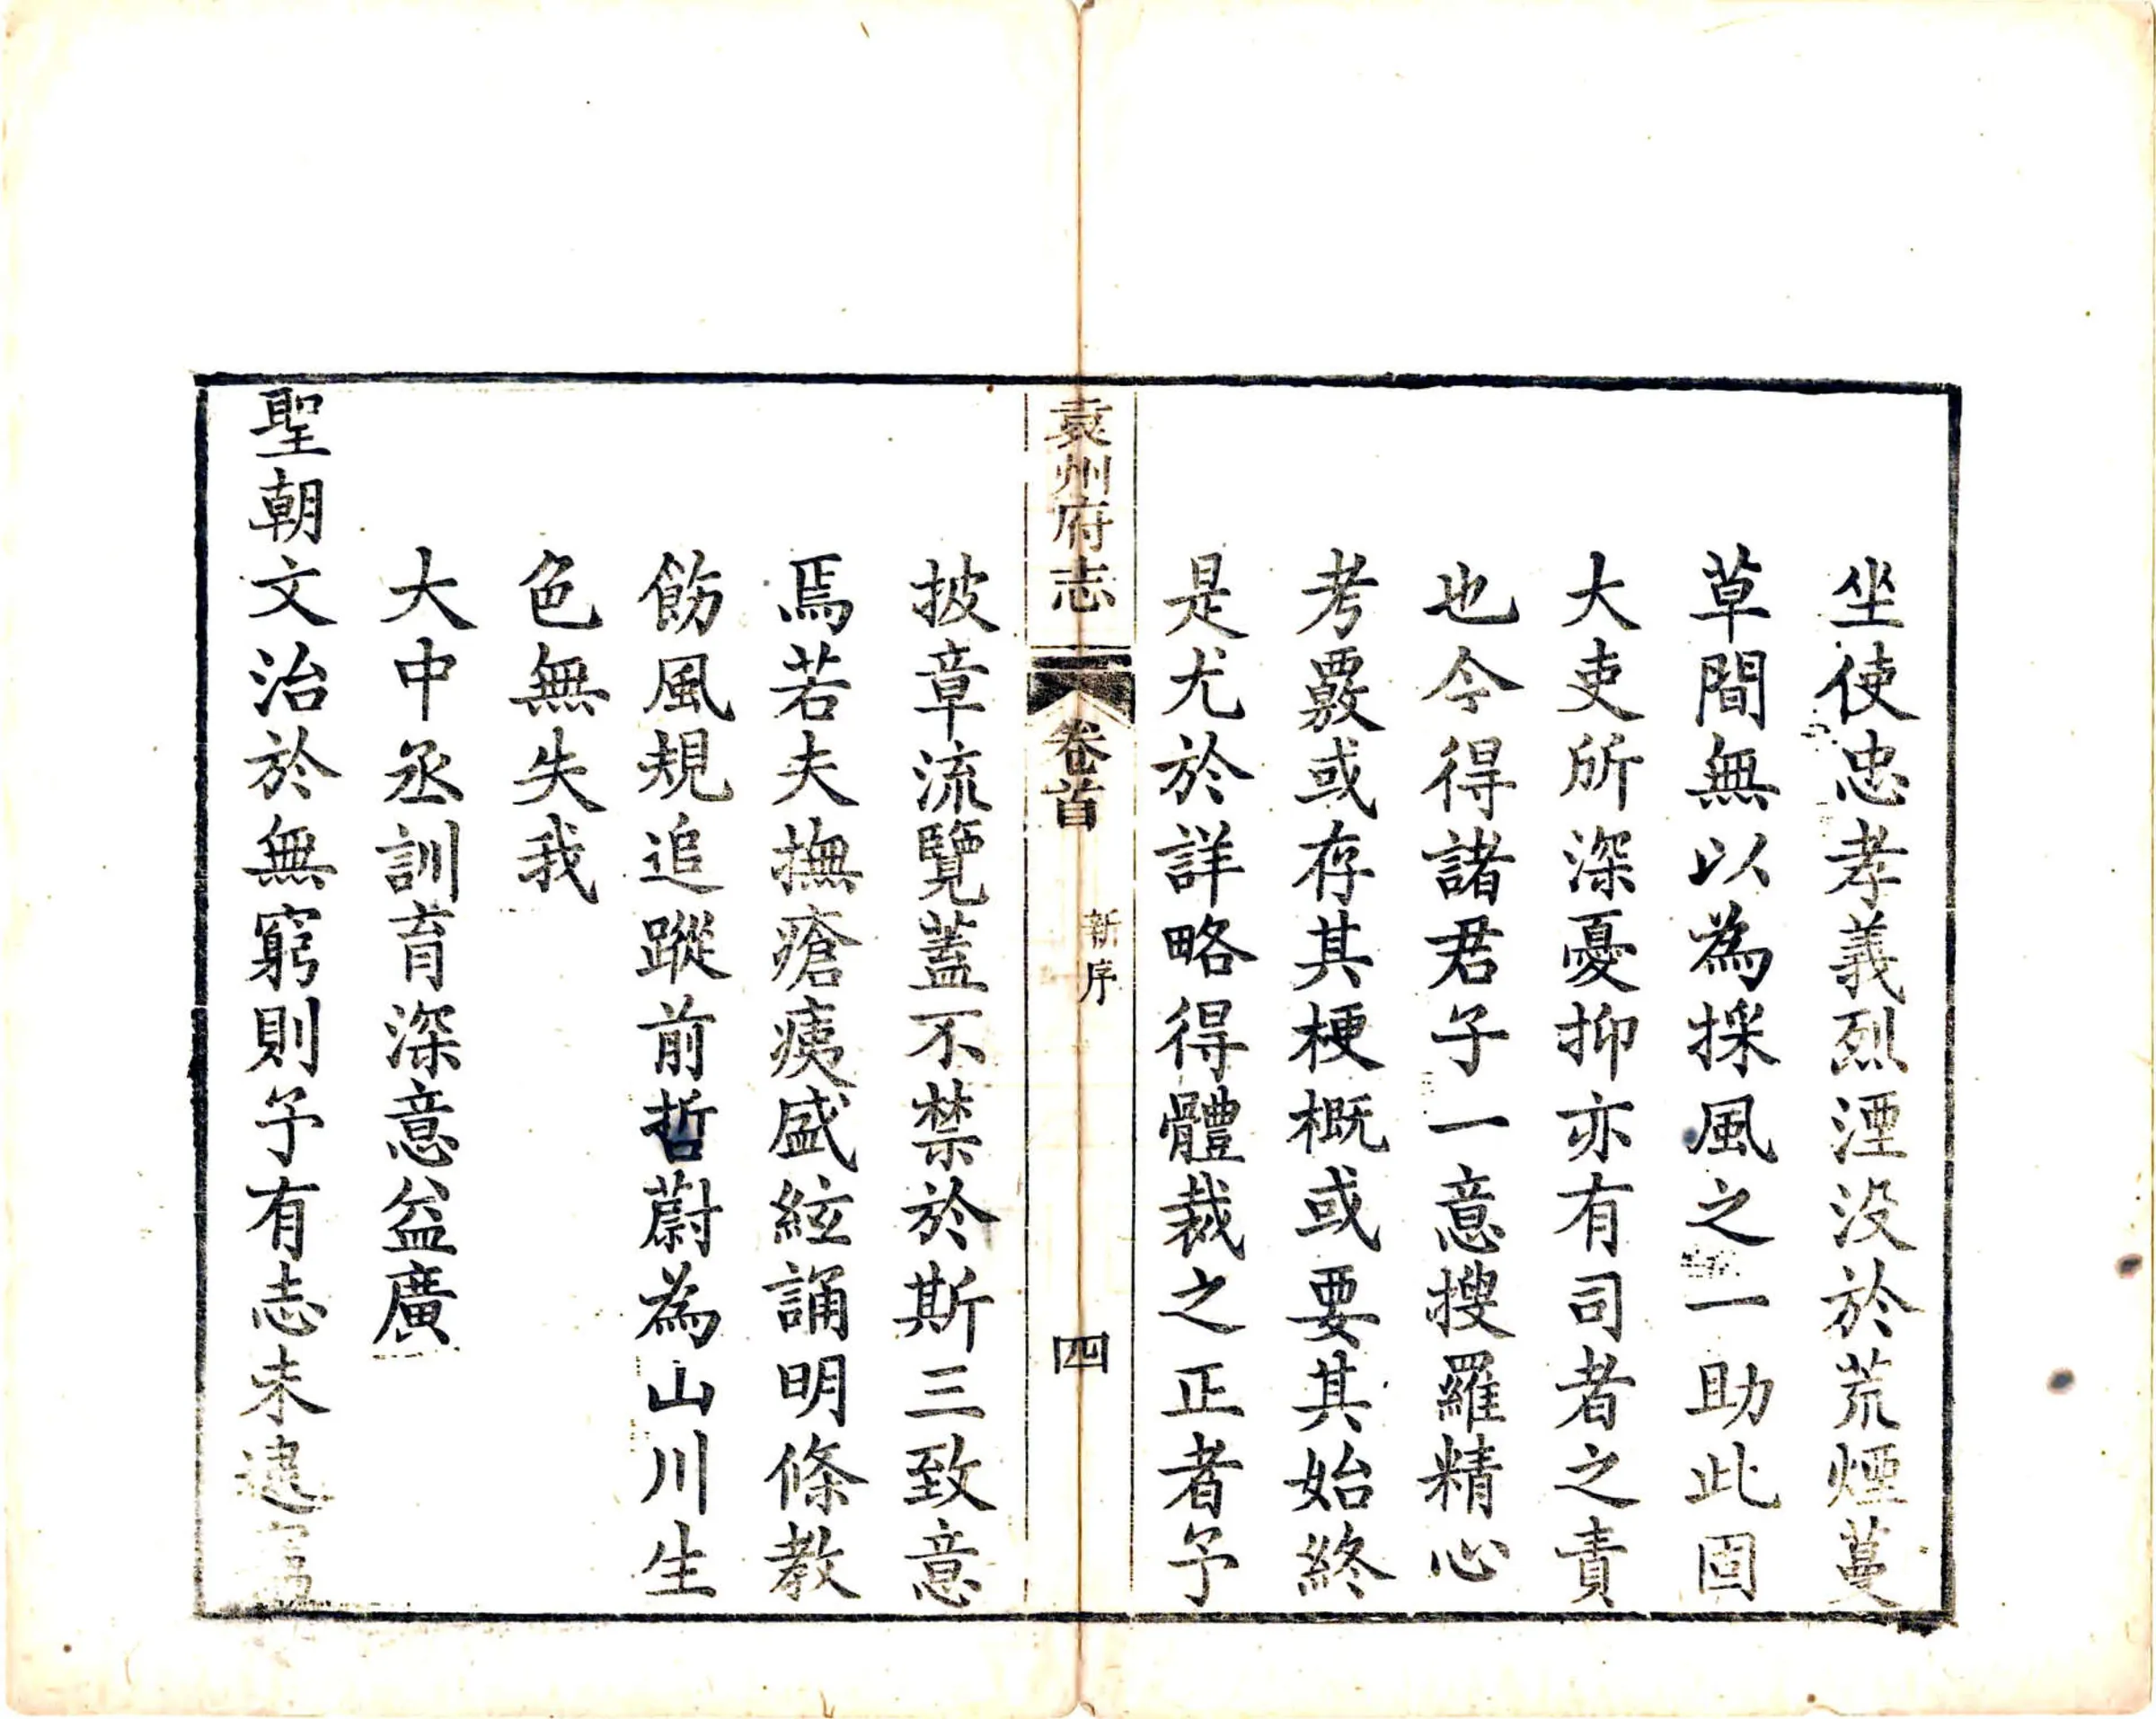 坐使忠孝義烈湮没於荒煙蔓
草間無以為採風之一助此固
大吏所深憂抑亦有司者之責
也今得諸君子一意搜羅精心
考覈或存其梗概或要其始終
是尤於詳略得體裁之正者予
袁州府志 卷首 新序 四
披章流覽蓋不禁於斯三致意
焉若夫撫瘡痍盛絃誦明條教
飭風規追蹤前哲蔚為山川生
色無失我
大中丞訓育深意益廣
聖朝文治於無窮則予有志未逮